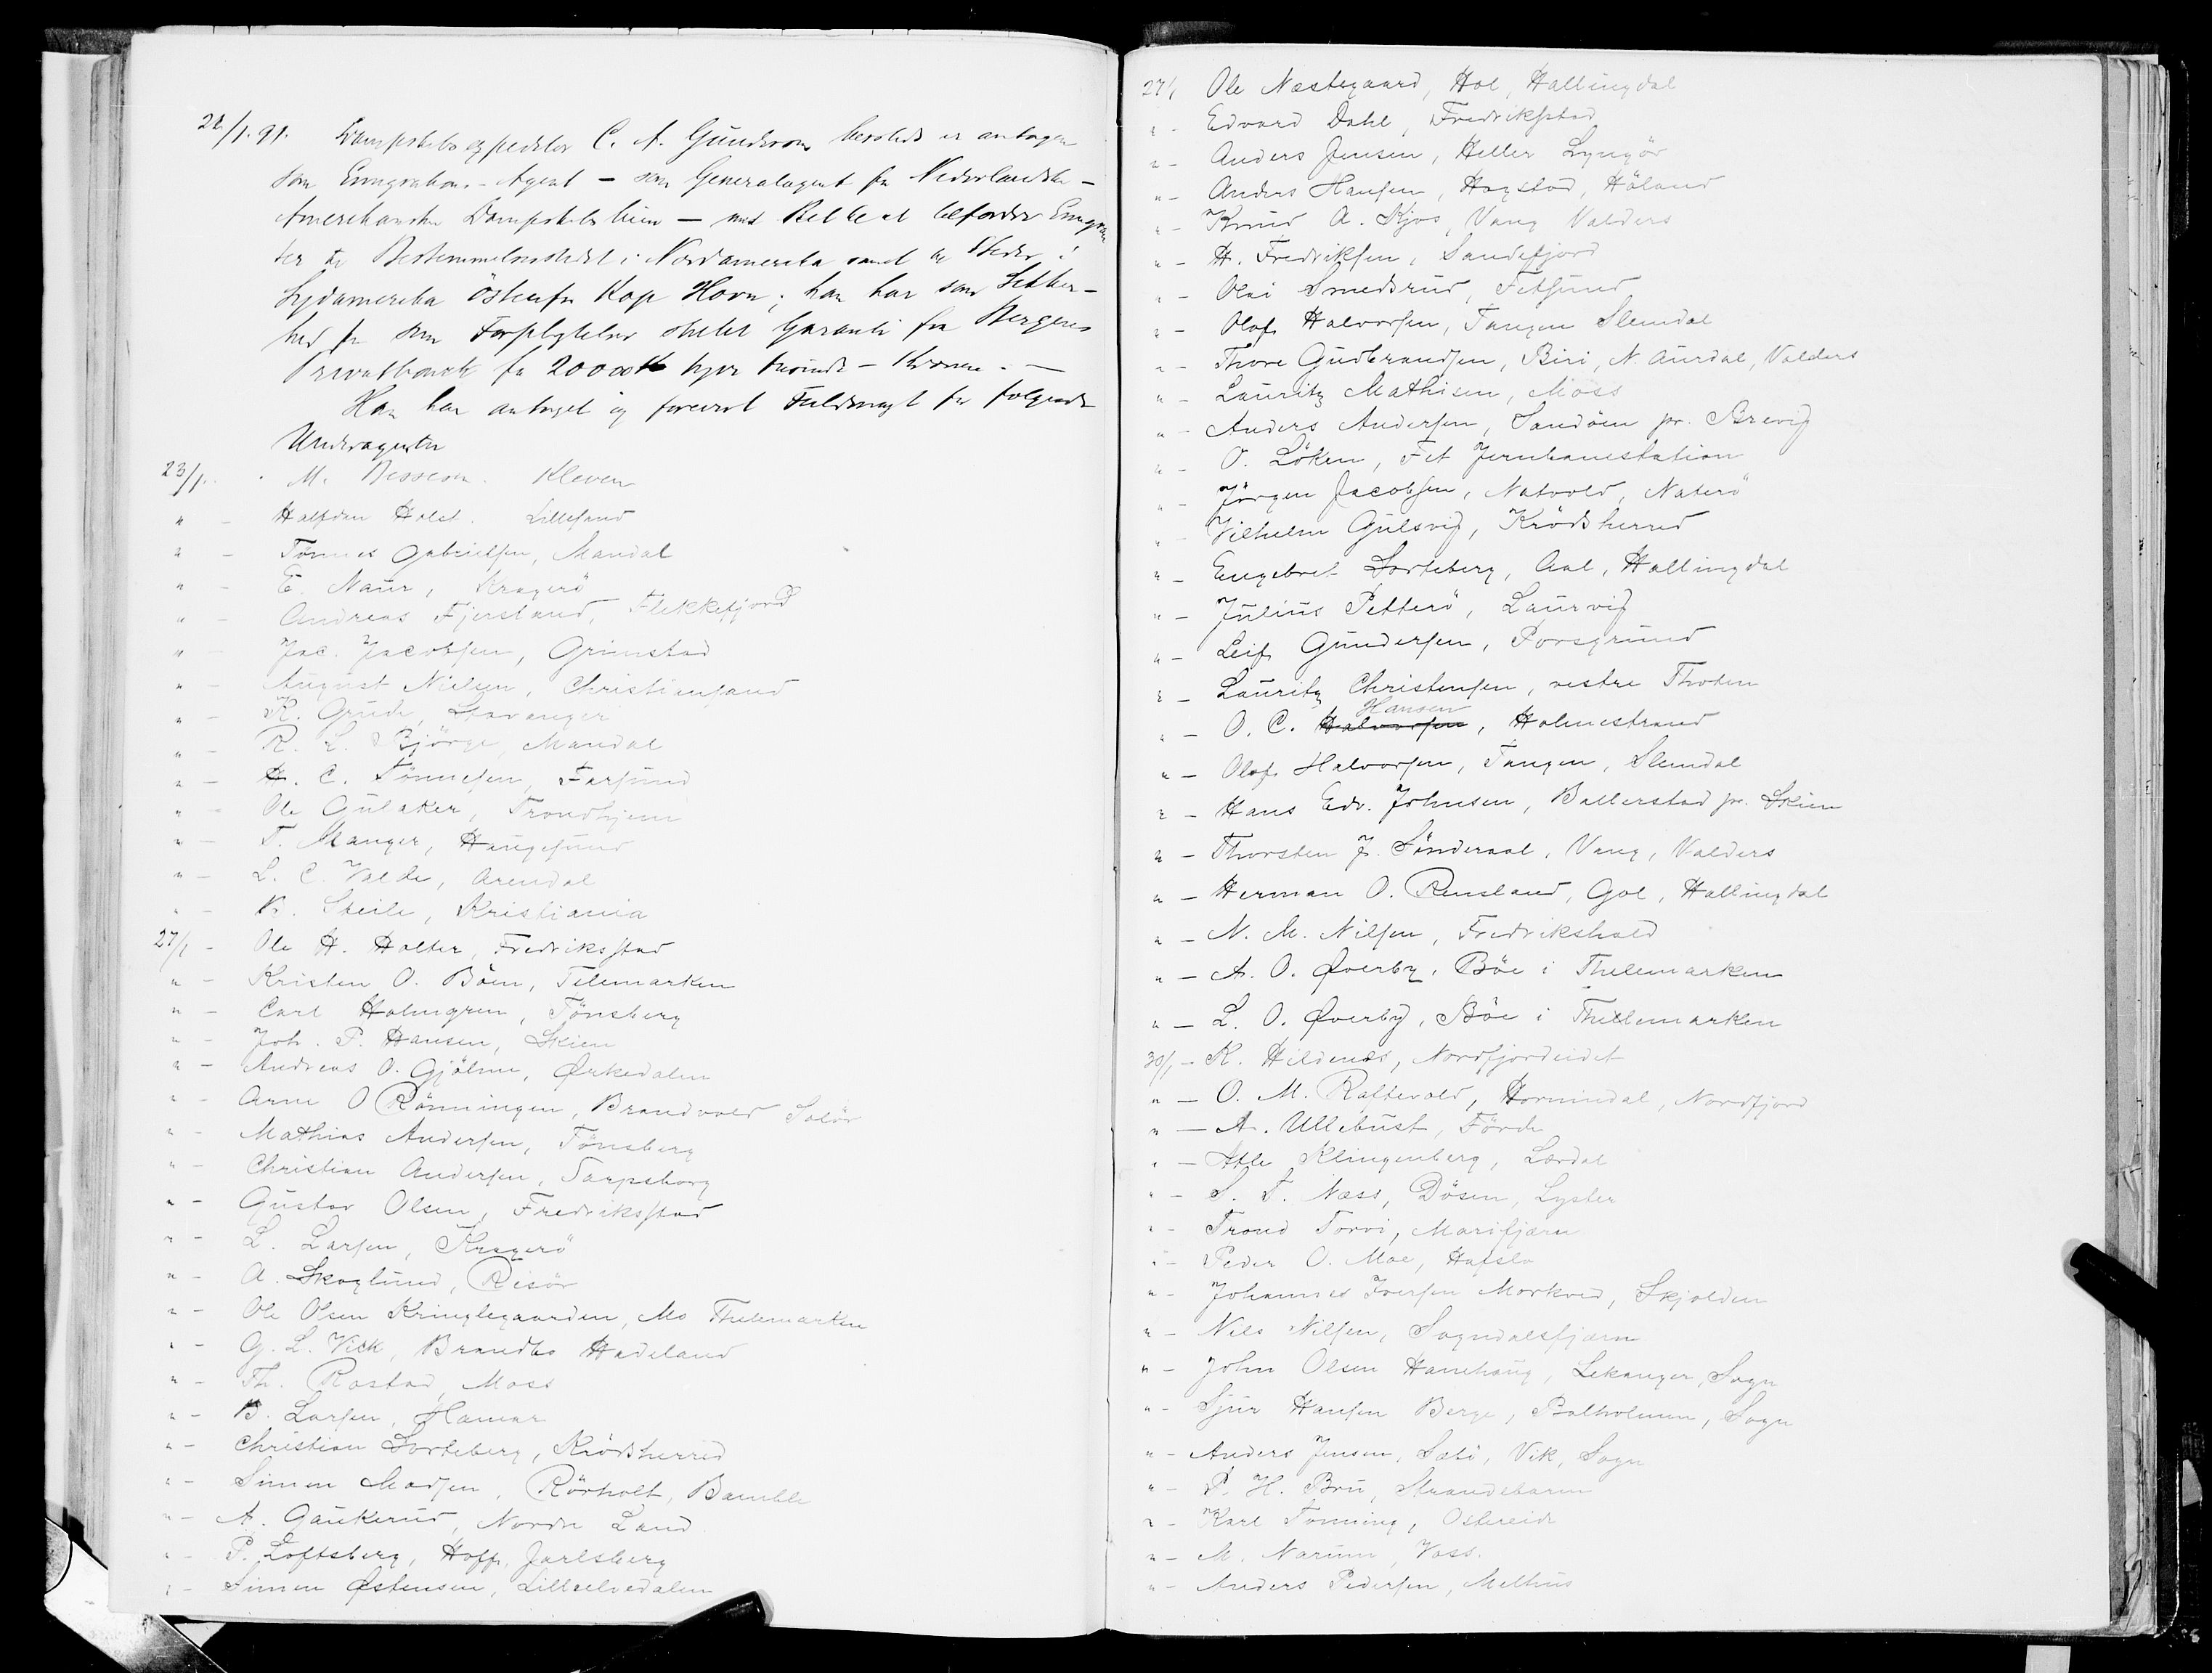 22/1. 91. Dampskibsexpeditør C. A. Gundersen hersteds er antagen
som Emigrations-Agent – som Generalagent for Nederlandske-
Amerikanske Dampskibslinie – med Ret til at befordre Emigran
ter til Bestemmelsessteder i Nordamerika samt til Steder i
Sydamerika östenfor Kap Horn; han har som Sikker-
hed for sine Forpligtelser stillet Garanti fra Bergens
Privatbank for 20000 Kr tyve tusinde – Kroner. –
Han har antaget og forevist Fuldmagt for følgende
Underagenter
23/1. M. Kleven
" – Halfdan Holst. Lillesand
" – Tönnes Gabrielsen, Mandal
" – E. Naur, Kragerö
" – Andreas Fjersland, Flekkefjord
" – Jac. Jacobsen, Grimstad
" – August Nielsen, Christiansand
" – K. Grude, Stavanger
" – R. L. Bjørge, Mandal
" – H. C. Tönnesen, Farsund
" – Ole Gulaker, Trondhjem
" – T. Manger, Haugesund
" – L. C. Valde, Arendal
" – B. Steile, Kristiania
27/1 – Ole H. Holter, Fredriksstad
" – Kristen O. Böen, Telemarken
" – Carl Holmgren, Tönsberg
" – Joh. P. Hansen, Skien
" – Andreas O. Gjölme, Ørkedalen
" – Arne O Rönningen, Brandvold Solör
" – Mathias Andersen, Tönsberg
" – Christian Andersen, Sarpsborg
" – Gustav Olsen, Fredriksstad
" – L. Larsen, Kragerö
" – A. Skoglund, Risör
" – Ole Olsen Kringlegaarden, Mo Thelemarken
" – G. L. Vick, Brandbo Hadeland
" – Th. Rostad, Moss
" – B. Larsen, Hamar
" – Christian Sorteberg, Krödsherred
" – Simen Madsen, Rörholt, Bamble
" – A. Gaukerud, Nordre Land
" – P. Loftsberg, Hoff, Jarlsberg
" – Simen Østensen, Lilleelvedalen
27/1 Ole Nestegaard, Hol, Hallingdal
" – Edvard Dahl, Fredriksstad
" – Anders Jensen, Heller Lyngör
" – Anders Hansen, Hogstad, Höland
" – Knud A. Kjos, Vang Valders
" – H. Fredriksen, Sandefjord
" – Olai Smedsrud, Fetsund
" – Olaf Halvorsen, Tangen Slemdal
" – Thore Gudbrandsen, Biri, N. Aurdal, Valders
" – Lauritz Mathisen, Moss
" – Anders Andersen, Sandöen pr. Brevig
" – O. Löken, Fet Jernbanestation
" – Jörgen Jacobsen, Natvold, Naterö
" – Vilhelm Gulsvig, Krödsherred
" – Engebret Sorteberg, Aal, Hallingdal
" – Julius Petterö, Laurvig
" – Leif Gundersen, Porsgrund
" – Lauritz Christensen, vestre Thoten
Hansen
" – O. C. Halvorsen, Holmestrand
" – Olaf Halvorsen, Tangen, Slemdal
" – Hans Edv. Johnsen, Ballerstad pr. Skien
" – Thorsten J. Sönderaal, Vang, Valders
" – Herman O. Rensland, Gol, Hallingdal
" – N. M. Nilsen, Fredrikshald
" – A. O. Øverby, Böe i Thelemarken
" – L. O. Øverby, Böe i Thelemarken
30/1 – K. Hildenes, Nordfjordeidet
" – O. M. Raftevold, Hornindal, Nordfjord
" – A. Ullebust, Förde
" – Atle Klingenberg, Lærdal
" – S. T. Næss, Dösen, Lyster
" – Trond Torvi, Marifjæren
" – Peder O. Moe, Hafslo
" – Johannes Iversen Morkved, Skjolden
" – Nils Nilsen, Sogndalsfjæren
" – John Olsen Hanehaug, Lekanger, Sogn
" – Sjur Hansen Berge, Balholmen, Sogn
" – Anders Jensen, Sætö, Vik, Sogn
" – P. H. Bru, Strandebarm
" – Karl Tonning, Ostereide
" – M. Narum, Voss.
" – Anders Pedersen, Melhus